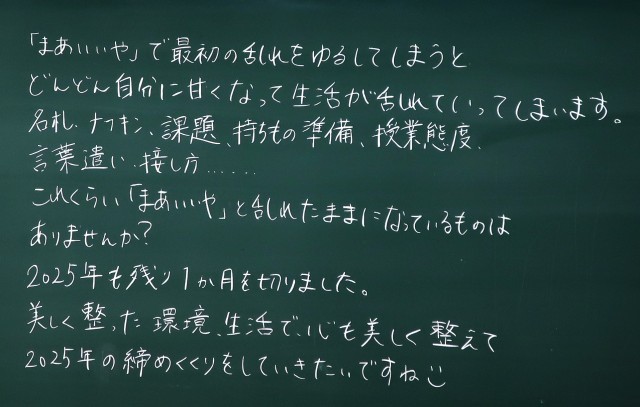 「まあいいや」で最初の乱れをゆるしてしまうと
どんどん自分に甘くなって生活が乱れていってしまいます。
名札、ナフキン、課題、持ちもの準備、授業態度、
言葉遣い、接し方......
これくらい「まあいいや」と乱れたままになっているものは
ありませんか?
2025年も残り1か月を切りました。
美しく整った環境、生活で、心も美しく整えて
2025年の締めくくりをしていきたいですね